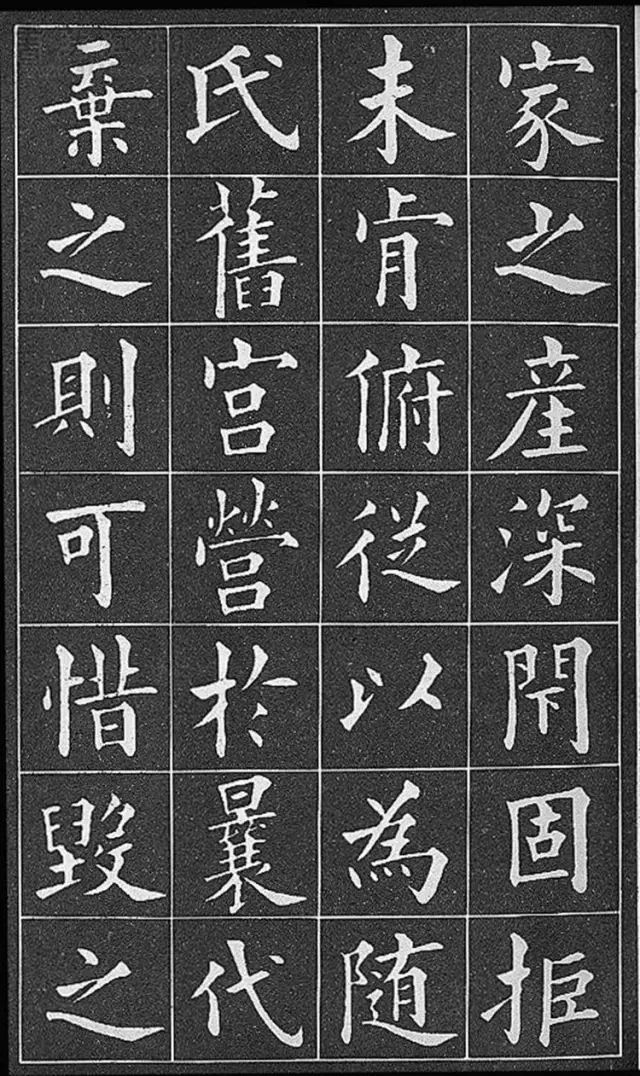 家之產深閇固拒
未肯俯從以為隨
氏舊宫營於曩代
棄之則可惜毀之